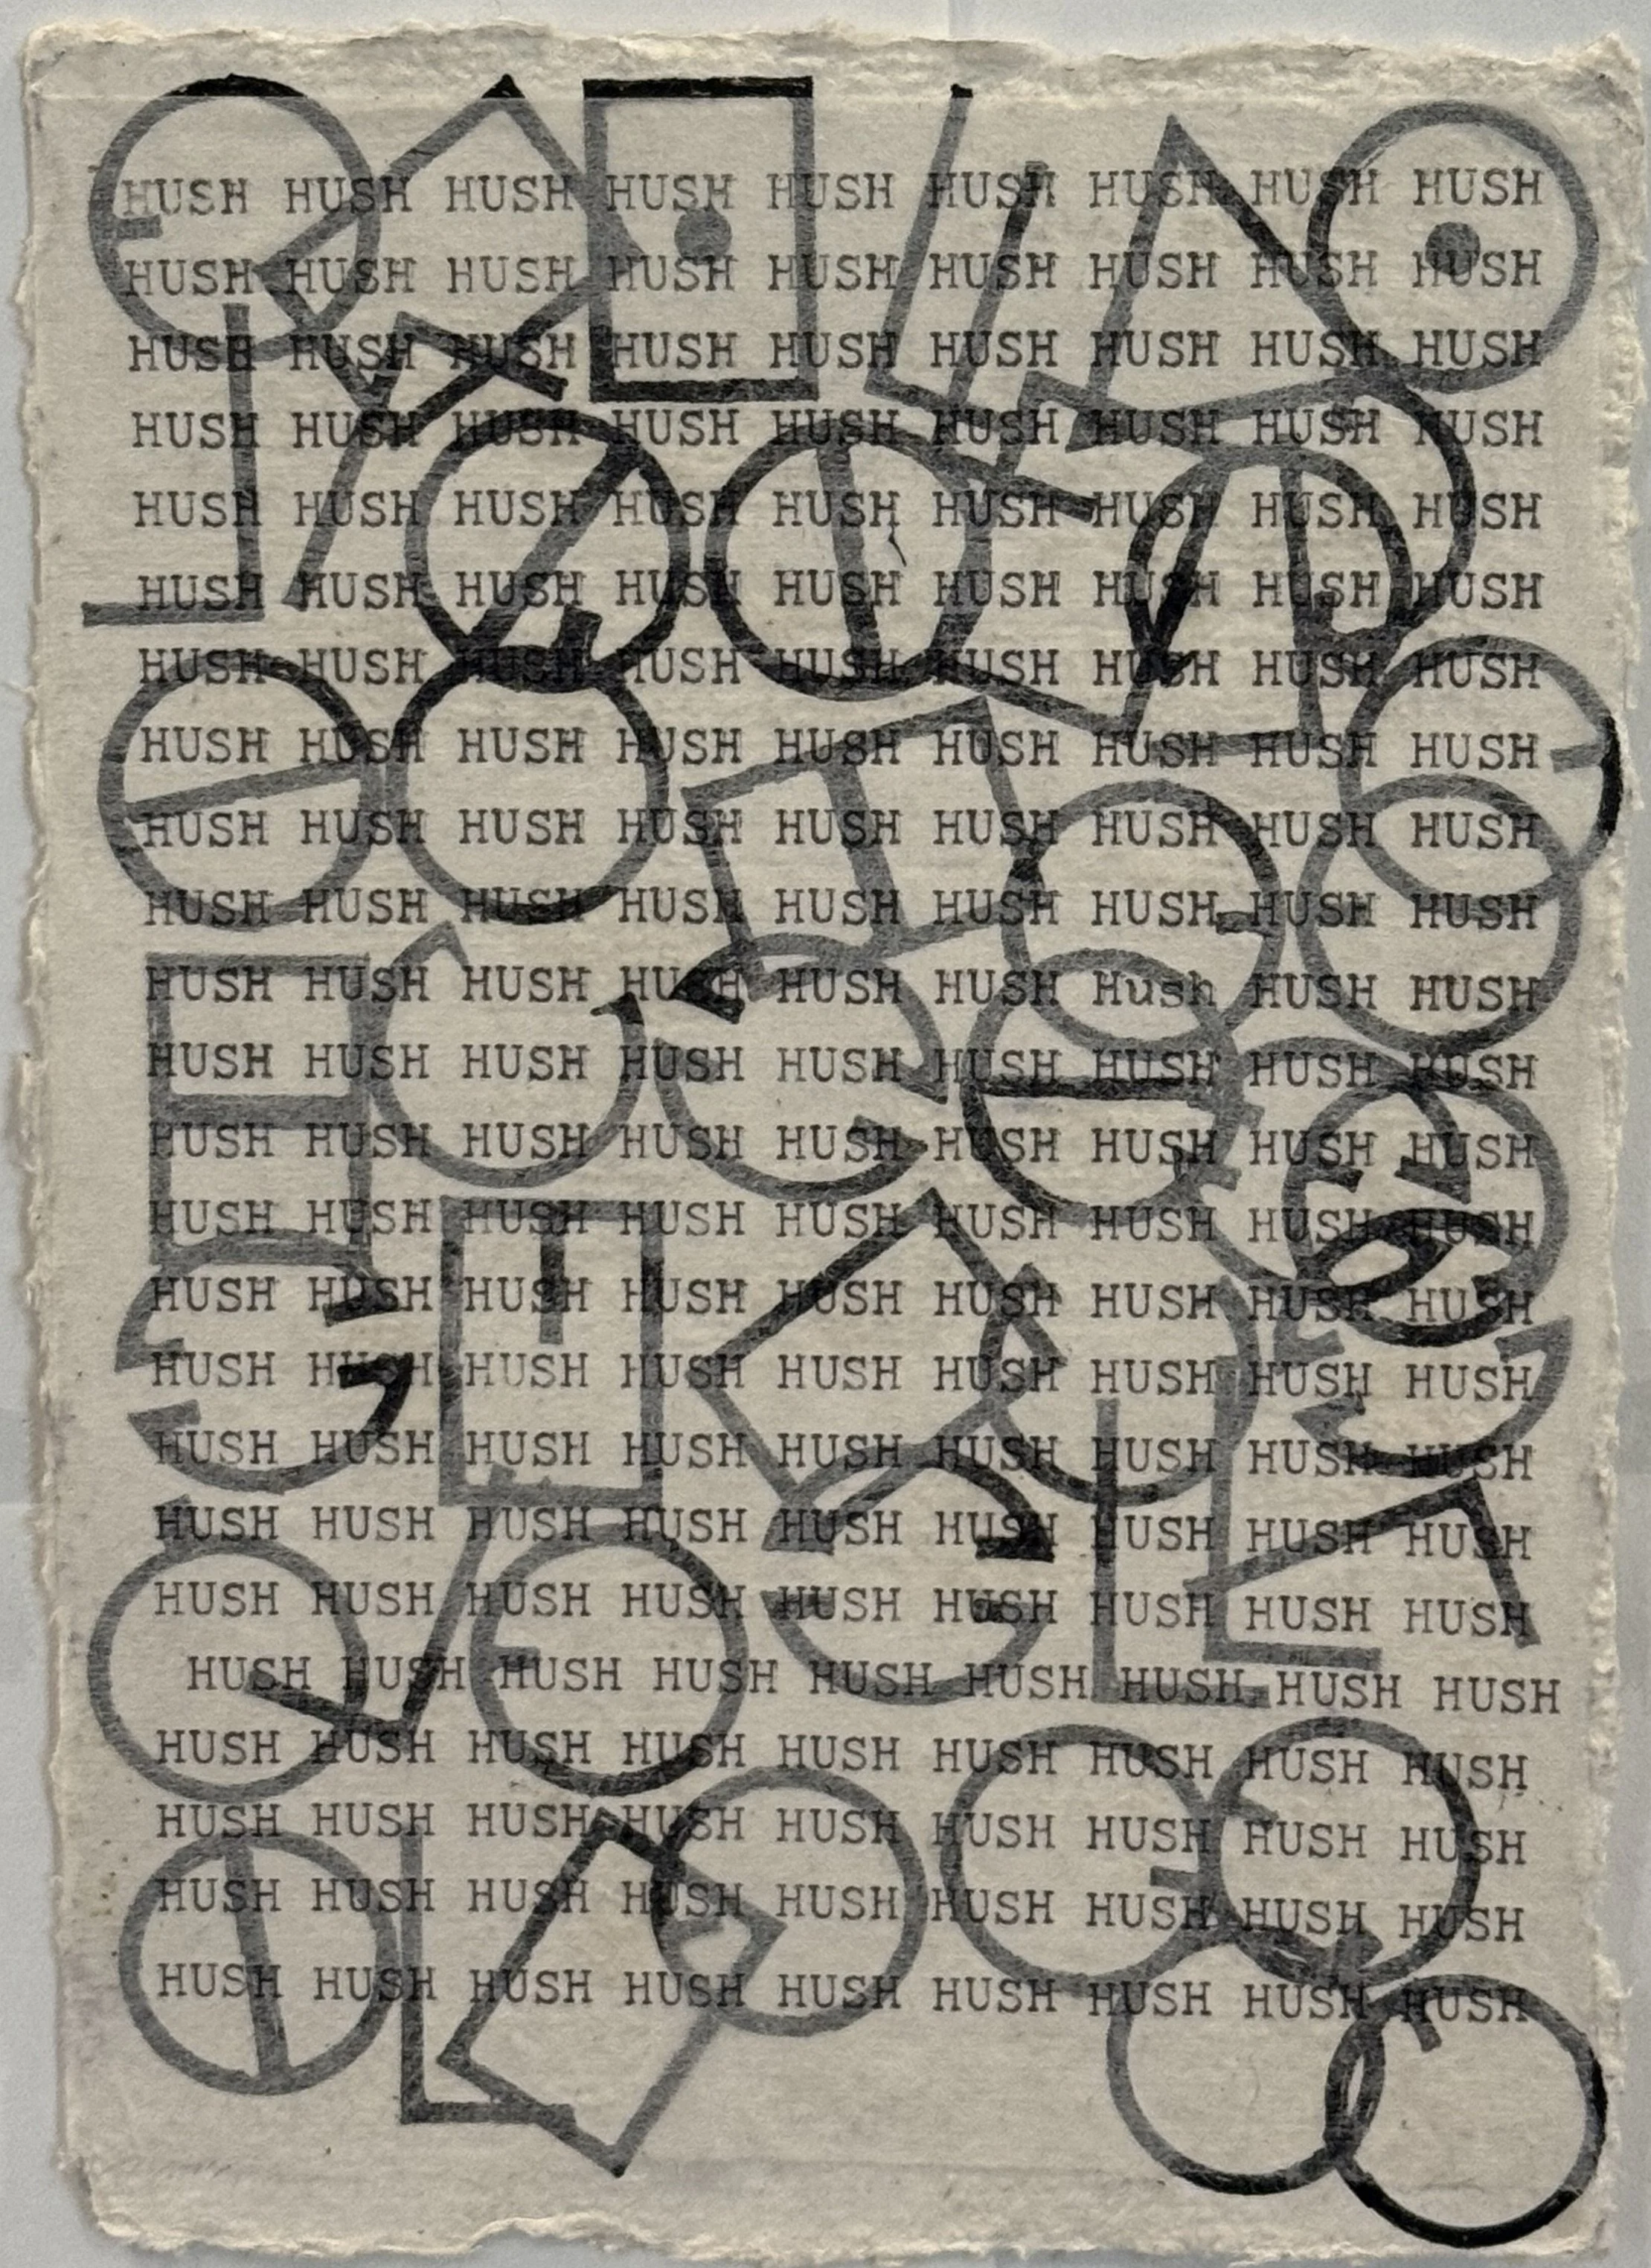 HUSH HUSH HUSH HUSH HUSH HUSH HUSH HUSH HUSH
HUSH HUSH HUSH HUSH HUSH HUSH HUSH HUSH HUSH
HUSH HUSH HUSH HUSH HUSH HUSH HUSH HUSH HUSH
HUSH HUSH HUSH HUSH HUSH HUSH HUSH HUSH HUSH
HUSH HUSH HUSH HUSH HUSH HUSH HUSH HUSH HUSH
HUSH HUSH HUSH HUSH HUSH HUSH HUSH HUSH HUSH
HUSH HUSH HUSH HUSH HUSH HUSH HUSH HUSH HUSH
HUSH HUSH HUSH HUSH HUSH HUSH HUSH HUSH HUSH
HUSH HUSH HUSH HUSH HUSH HUSH HUSH HUSH HUSH
HUSH HUSH HUSH HUSH HUSH HUSH HUSH HUSH HUSH
HUSH HUSH HUSH HUSH HUSH HUSH Hush HUSH HUSH
HUSH HUSH HUSH HUSH HUSH HUSH HUSH HUSH HUSH
HUSH HUSH HUSH HUSH HUSH HUSH HUSH HUSH HUSH
HUSH HUSH HUSH HUSH HUSH HUSH HUSH HUSH HUSH
HUSH HUSH HUSH HUSH HUSH HUSH HUSH HUSH HUSH
HUSH HUSH HUSH HUSH HUSH HUSH HUSH HUSH HUSH
HUSH HUSH HUSH HUSH HUSH HUSH HUSH HUSH HUSH
HUSH HUSH HUSH HUSH HUSH HUSH HUSH HUSH HUSH
HUSH HUSH HUSH HUSH HUSH HUSH HUSH HUSH HUSH
HUSH HUSH HUSH HUSH HUSH HUSH HUSH HUSH HUSH
HUSH HUSH HUSH HUSH HUSH HUSH HUSH HUSH HUSH
HUSH HUSH HUSH HUSH HUSH HUSH HUSH HUSH HUSH
HUSH HUSH HUSH HUSH HUSH HUSH HUSH HUSH HUSH
HUSH HUSH HUSH HUSH HUSH HUSH HUSH HUSH HUSH